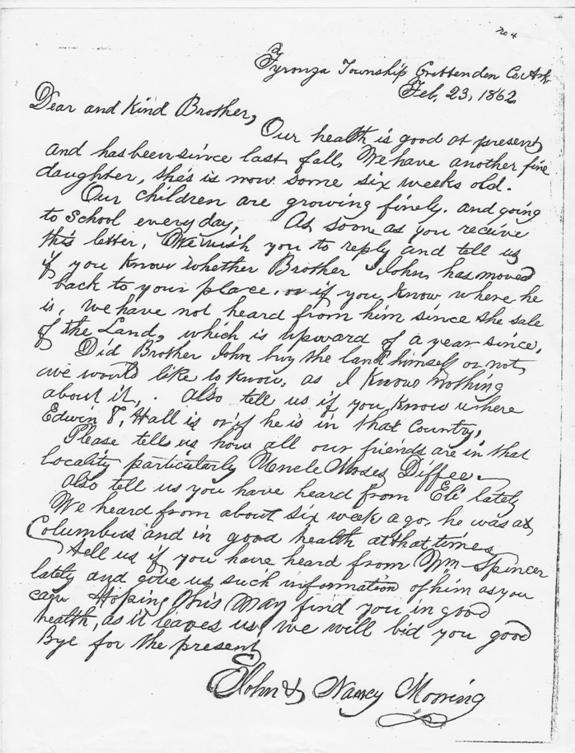 no 4
Tyronza Township Crittenden Co Ark
Feb, 23, 1862
Dear and Kind Brother,
Our health is good at present,
and has been since last fall, We have another fine
daughter, she's is now some six weeks old.
Our children are growing finely. and going
to School every day, As soon as you receive
this letter, We wish you to reply and tell us
if you know whether Brother John, has moved
back to your place, or if you know where he
is, we have not heard from him since the sale
of the Land, which is upward of a year since,
Did Brother John buy the land himself or not,
we would like to know, as I know nothing
about it,. Also tell us if you know where
Edwin T, Hall is or if he is in that Country,
Please tell us how all our friends are in that
locality particularly Uncle Moses Diffee.
Also tell us you have heard from Eli lately
We heard from about six week ago. he was at
Columbus and in good health at that times
tell us if you have heard from Wm Spencer
lately and give us such information of him as you
can Hoping this May find you in good
health, as it leaves us, we will bid you good
Bye for the present
John & Nancy Mooring